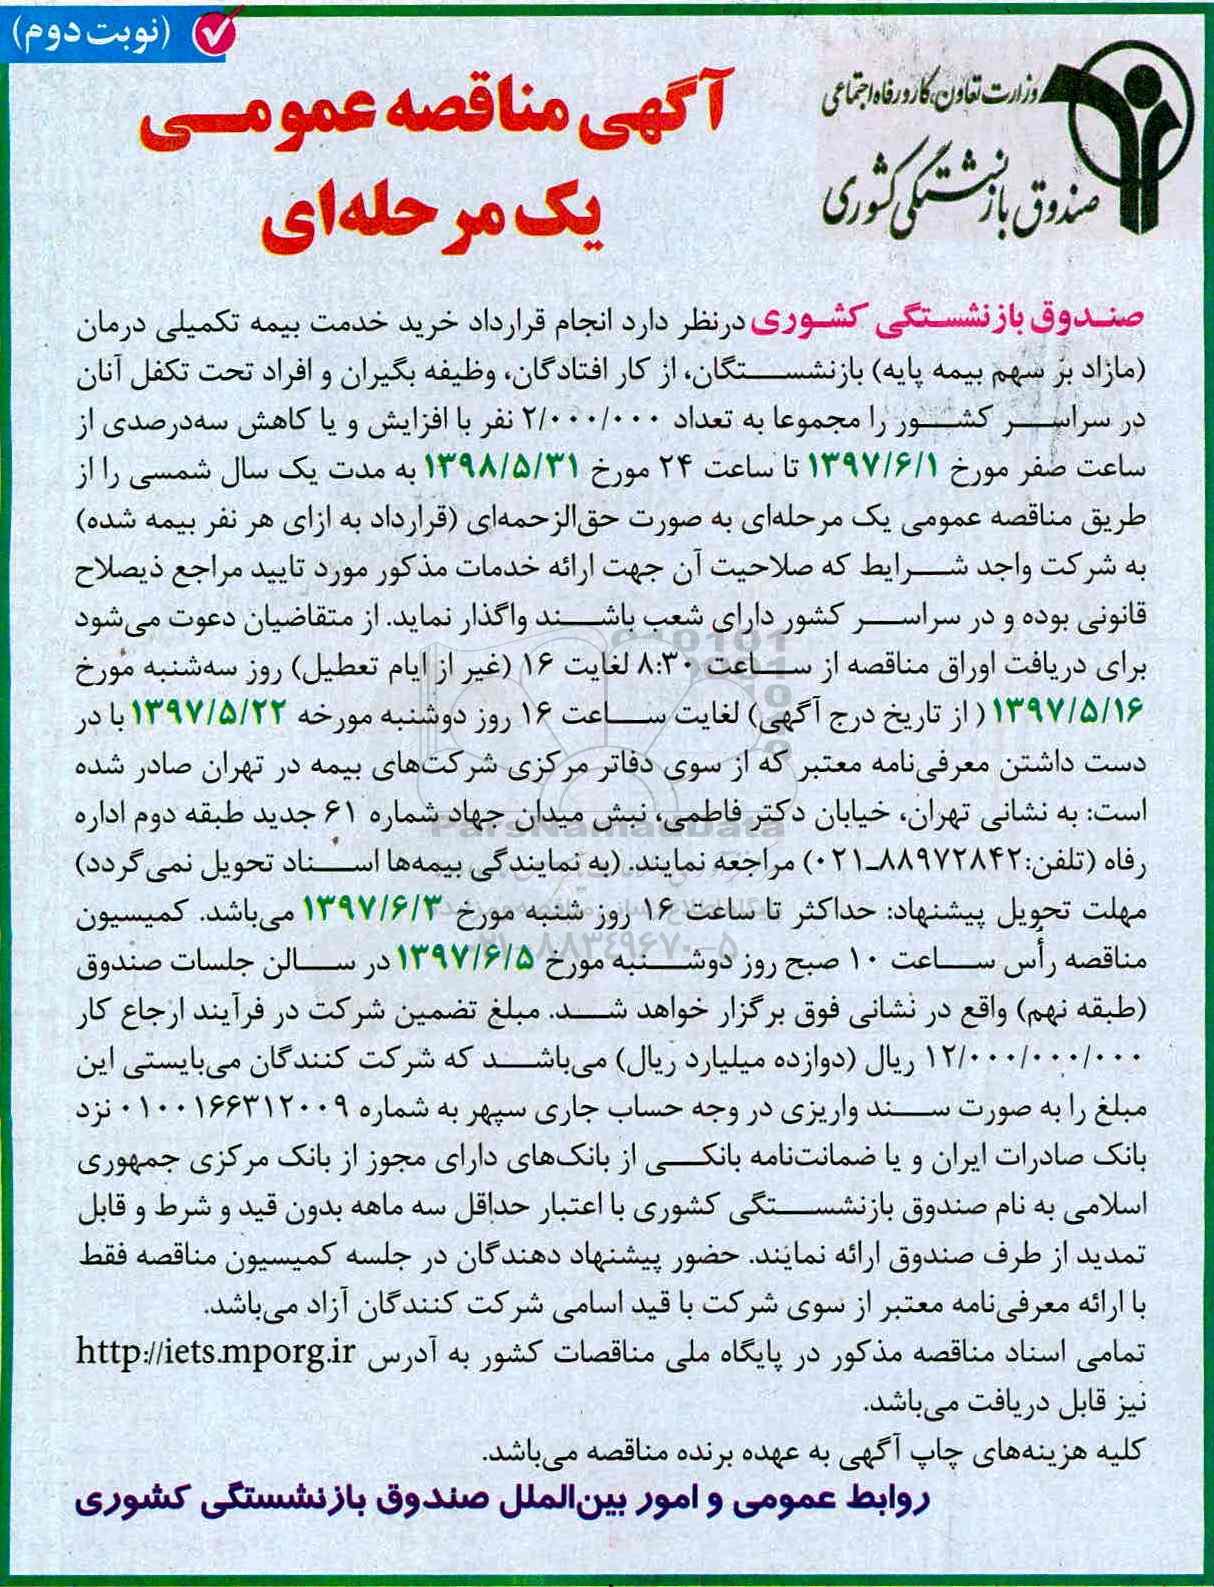 (نوبت دوم)
وزارت تعاون، کار و رفاه اجتماعی
صندوق بازنشستگی کشوری
آگهی مناقصه عمومی
یک مرحله‌ای
صندوق بازنشستگی کشوری درنظر دارد انجام قرارداد خرید خدمت بیمه تکمیلی درمان
(مازاد بر سهم بیمه پایه) بازنشستگان، از کار افتادگان، وظیفه بگیران و افراد تحت تکفل آنان
در سراسر کشور را مجموعا به تعداد ۲/۰۰۰/۰۰۰ نفر با افزایش و یا کاهش سه‌درصدی از
ساعت صفر مورخ ۱۳۹۷/۶/۱ تا ساعت ۲۴ مورخ ۱۳۹۸/۵/۳۱ به مدت یک سال شمسی را از
طریق مناقصه عمومی یک مرحله‌ای به صورت حق‌الزحمه‌ای (قرارداد به ازای هر نفر بیمه شده)
به شرکت واجد شرایط که صلاحیت آن جهت ارائه خدمات مذکور مورد تایید مراجع ذیصلاح
قانونی بوده و در سراسر کشور دارای شعب باشند واگذار نماید. از متقاضیان دعوت می‌شود
برای دریافت اوراق مناقصه از ساعت ۸:۳۰ لغایت ۱۶ (غیر از ایام تعطیل) روز سه‌شنبه مورخ
۱۳۹۷/۵/۱۶ ( از تاریخ درج آگهی) لغایت ساعت ۱۶ روز دوشنبه مورخه ۱۳۹۷/۵/۲۲ با در
دست داشتن معرفی‌نامه معتبر که از سوی دفاتر مرکزی شرکت‌های بیمه در تهران صادر شده
است: به نشانی تهران، خیابان دکتر فاطمی، نبش میدان جهاد شماره ۶۱ جدید طبقه دوم اداره
رفاه (تلفن:۸۸۹۷۲۸۴۲-۰۲۱) مراجعه نمایند. (به نمایندگی بیمه‌ها اسناد تحویل نمی‌گردد)
مهلت تحویل پیشنهاد: حداکثر تا ساعت ۱۶ روز شنبه مورخ ۱۳۹۷/۶/۳ می‌باشد. کمیسیون
مناقصه رأس ساعت ۱۰ صبح روز دوشنبه مورخ ۱۳۹۷/۶/۵ در سالن جلسات صندوق
(طبقه نهم) واقع در نشانی فوق برگزار خواهد شد. مبلغ تضمین شرکت در فرآیند ارجاع کار
۱۲/۰۰۰/۰۰۰/۰۰۰ ریال (دوازده میلیارد ریال) می‌باشد که شرکت کنندگان می‌بایستی این
مبلغ را به صورت سند واریزی در وجه حساب جاری سپهر به شماره ۰۱۰۰۱۶۶۳۱۲۰۰۹ نزد
بانک صادرات ایران و یا ضمانت‌نامه بانکی از بانک‌های دارای مجوز از بانک مرکزی جمهوری
اسلامی به نام صندوق بازنشستگی کشوری با اعتبار حداقل سه ماهه بدون قید و شرط و قابل
تمدید از طرف صندوق ارائه نمایند. حضور پیشنهاد دهندگان در جلسه کمیسیون مناقصه فقط
با ارائه معرفی‌نامه معتبر از سوی شرکت با قید اسامی شرکت کنندگان آزاد می‌باشد.
تمامی اسناد مناقصه مذکور در پایگاه ملی مناقصات کشور به آدرس http://iets.mporg.ir
نیز قابل دریافت می‌باشد.
کلیه هزینه‌های چاپ آگهی به عهده برنده مناقصه می‌باشد.
روابط عمومی و امور بین‌الملل صندوق بازنشستگی کشوری
ParsNamadData
۰۲۱-۸۸۳۴۹۶۷۰-۵